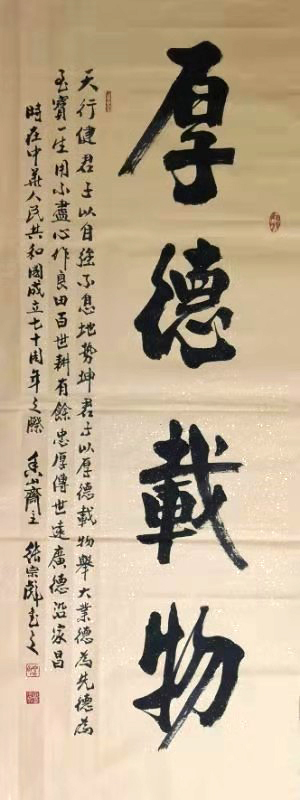 厚德載物
天行健君子以自强不息地勢坤君子以厚德載物舉大業德為先德為
至寶一生用不盡心作良田百世耕有餘忠厚傳世遠廣德沿家昌
時在中華人民共和國成立七十周年之際 香山齋主 宗彪書之